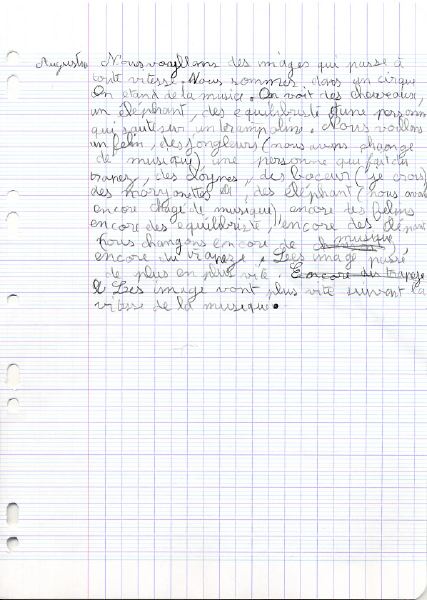 Augustin Nous voayllons des images qui passe à
toute vitesse. Nous sommes dans un cirque
On etand de la musice. On voit des chevaux,
un éléphant, des equilibriste d'une personne
qui saute sur un trampoline. Nous voullons
un felin, des jongleurs (nous avons change
de musique), une personne qui fait du
trapez, des clowns, des boceur (je crois)
des maryonettes et des éléphant (nous avons
encore change de musique), encore des felins
encore des equilibriste, encore des éléphant
(nous changons encore de musique)
encore du trapeze. Lees image passe
de plus en plus vite. Encore du trapeze
Lees image vont plus vite suivant la
vitesse de la musique.